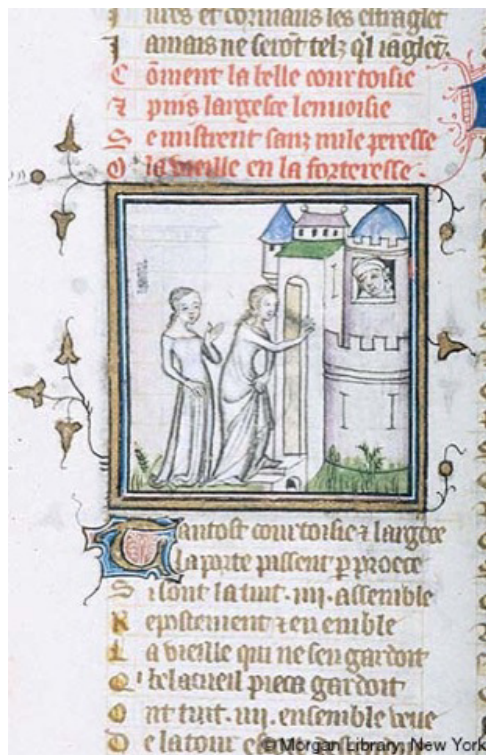 amais ne serōt telz q'l iāglēt.
Cōment la belle courtoisie
Z puis largesce lenuoisie
Semistrent sanz nule peresse
O la vieille en la forteresse.
Tantost courtoisie z largece
la porte passent p proece
Si sont la tuit .iiii. assemble
Repostement z en emble
La vieille qui ne sen gardoit
Q' belacueil pieca gardoit
Ont tuit .iiii. ensemble veue
De la tour
© Morgan Library, New York